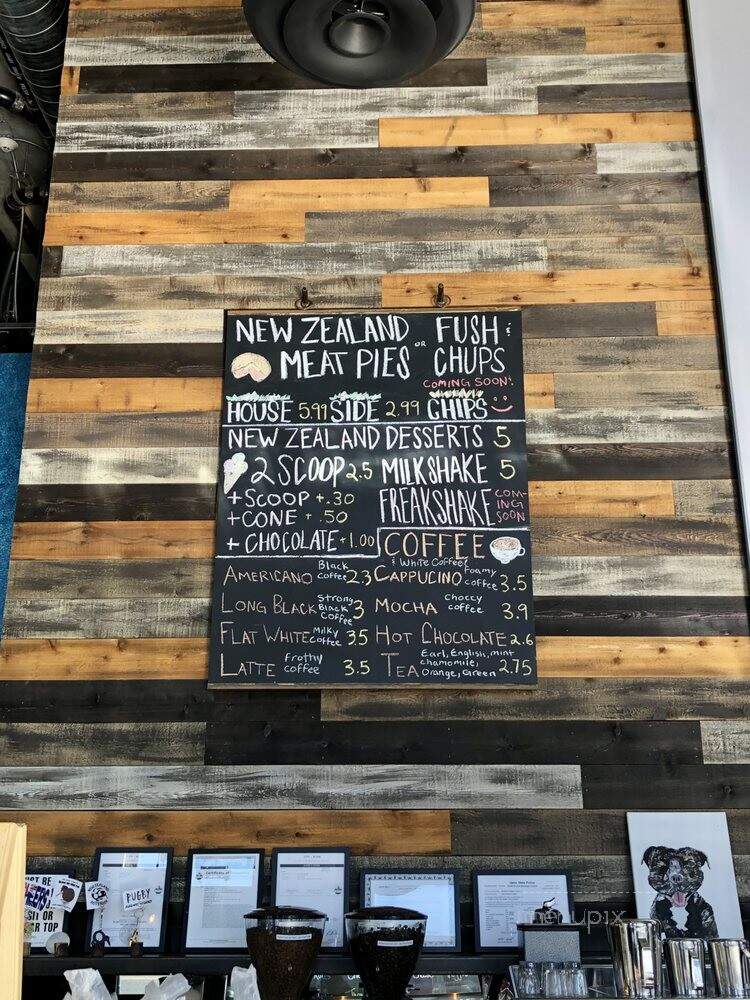 NEW ZEALAND OR FUSH &
MEAT PIES CHUPS
COMING SOON!
HOUSE 5.99 SIDE 2.99 CHIPS
NEW ZEALAND DESSERTS 5
2 SCOOP 2.5 MILKSHAKE 5
+ SCOOP +.30 FREAKSHAKE COM-
+ CONE + .50 ING
SOON
+ CHOCOLATE +1.00 COFFEE
& White Coffee
AMERICANO Black coffee 2.3 CAPPUCINO Foamy coffee 3.5
LONG BLACK Strong Black Coffee 3 MOCHA choccy coffee 3.9
FLAT WHITE Milky coffee 3.5 HOT CHOCOLATE 2.6
LATTE Frothy coffee 3.5 TEA Earl, English, mint
chamomile,
Orange, Green 2.75
RUGBY
SIT OR
menupix